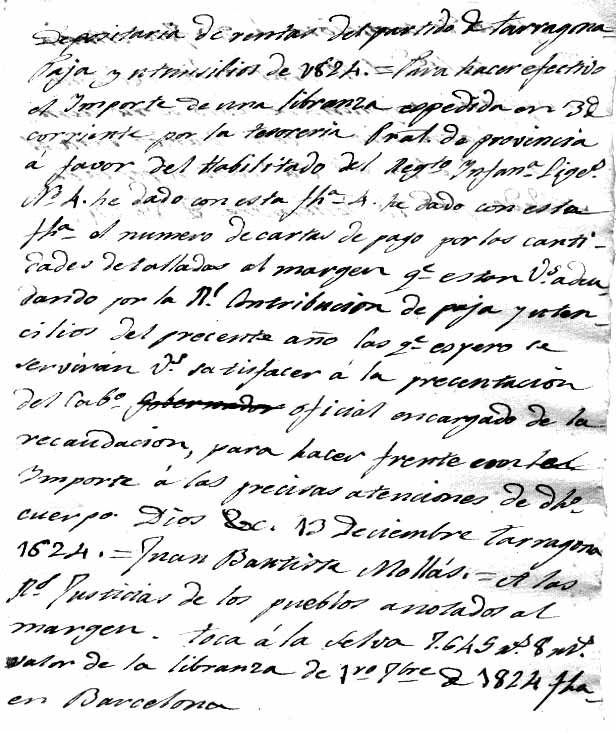 Depositaria de rentas del partido de Tarragona
Paja y utensilios de 1824. = Para hacer efectivo
el Importe de una libranza espedida en 3 d
corriente por la tesoreria Pral. de provincia
á favor del Habilitado del Regto. Infana. Ligea.
Nº 4. he dado con esta fha. 4. he dado con esta
fha. el numero de cartas de pago por las canti-
dades detalladas al margen qe. estan Vs. adeu-
dando por la Rl. Contribucion de paja y uten-
cilios del precente año las qe. espero se
servirán Vs. satisfacer á la precentacion
del Cabo. Gobernador oficial encargado de la
recaudacion, para hacer frente con el
Importe á las precisas atenciones de dho.
cuerpo. Dios &c. 13 Deciembre Tarragona
1824. = Juan Bautista Mollás. = A las
Rs. Justicias de los pueblos anotados al
margen. toca á la Selva 7.645 rs. 8 ms.
valor de la libranza de 1ro 7bre de 1824 fha.
en Barcelona